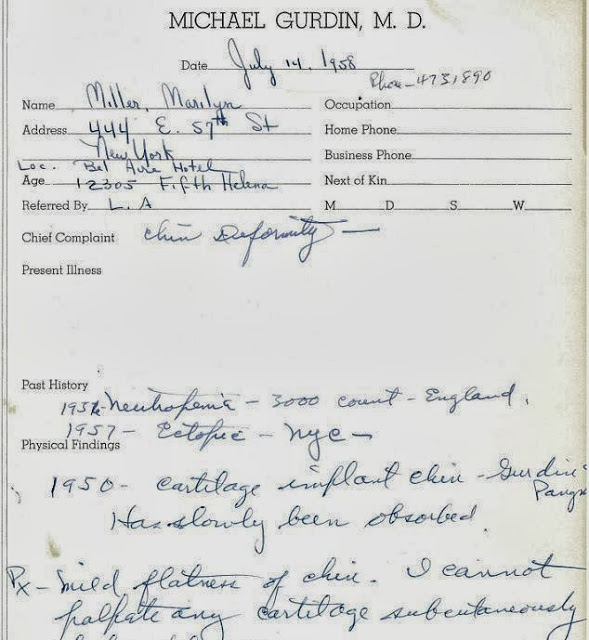 MICHAEL GURDIN, M. D.
Date July 14, 1958
Phone - 4731890
Name Miller, Marilyn
Occupation
Address 444 E. 57th St
Home Phone
New York
Business Phone
Loc. Bel Aire Hotel
Age 12305 Fifth Helena
Next of Kin
Referred By L. A
M D S W
Chief Complaint Chin Deformity —
Present Illness
Past History
Neutropenia - 3000 count - England.
1957 - Ectopic - NYC -
Physical Findings
1950 - cartilage implant chin - Gurdin
Has slowly been absorbed.
Px - Mild flatness of chin. I cannot
palpate any cartilage subcutaneously